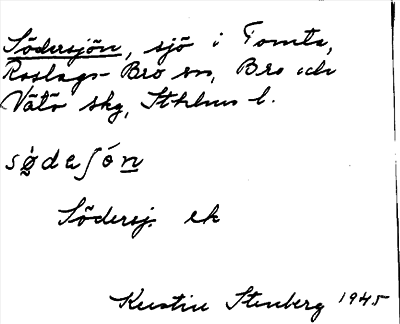 Södersjön, sjö i Tomta,
Roslags-Bro sn, Bro och
Vätö skg, Sthlms l.
sø̀deʃó̄n
Södersj. ek
Kerstin Stenberg 1945